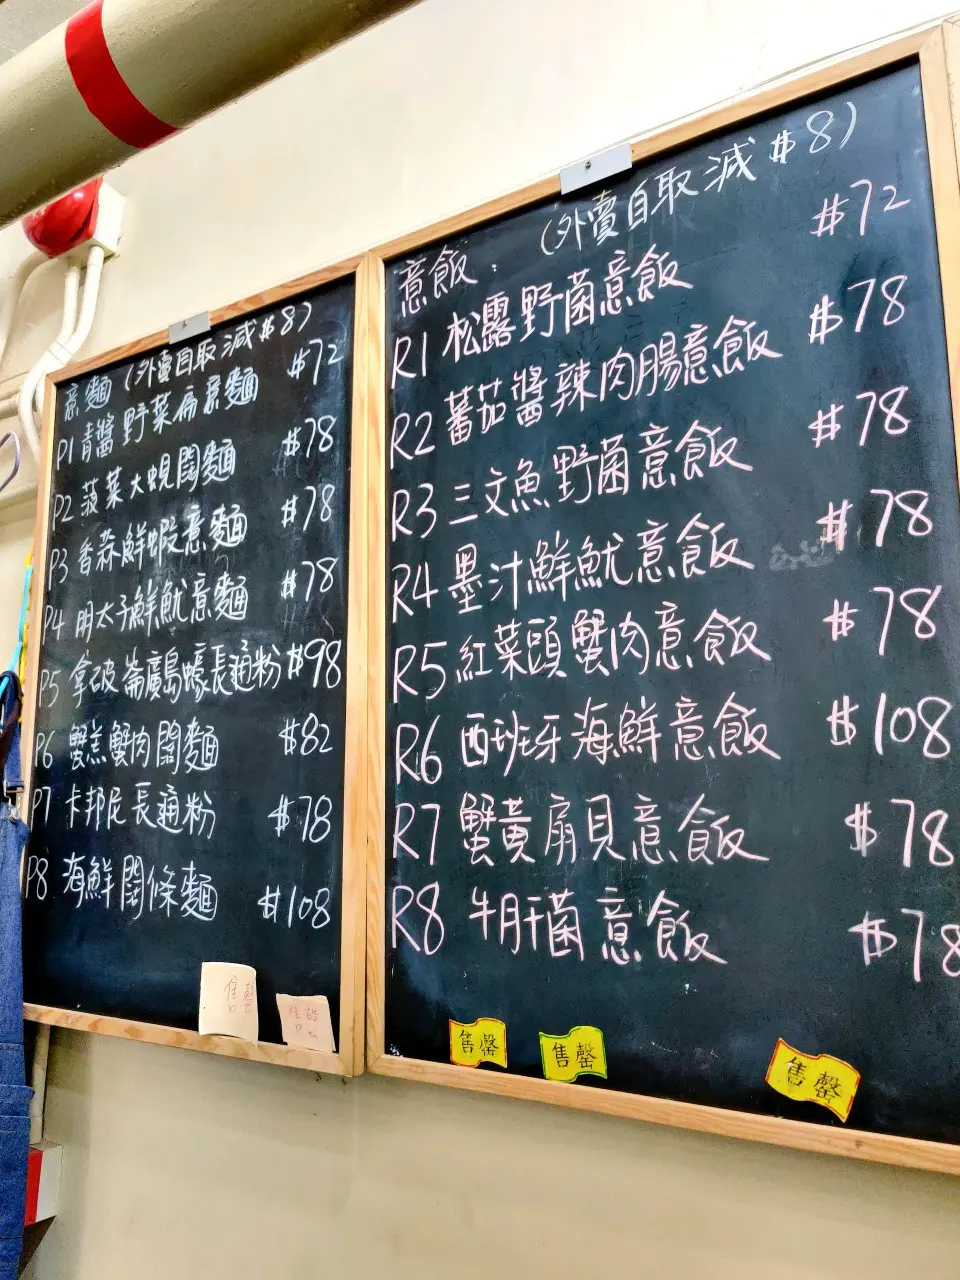 意麵 (外賣自取減$8)
P1 青醬野菜扁意麵 $72
P2 菠菜大蜆闊麵 $78
P3 香蒜鮮蝦意麵 $78
P4 明太子鮮魷意麵 $78
P5 拿破崙廣島蠔長通粉 $98
P6 蟹羔蟹肉闊麵 $82
P7 卡邦尼長通粉 $78
P8 海鮮闊條麵 $108
售罄
售罄
意飯: (外賣自取減$8)
R1 松露野菌意飯 $72
R2 蕃茄醬辣肉腸意飯 $78
R3 三文魚野菌意飯 $78
R4 墨汁鮮魷意飯 $78
R5 紅菜頭蟹肉意飯 $78
R6 西班牙海鮮意飯 $108
R7 蟹黃扇貝意飯 $78
R8 牛肝菌意飯 $78
售罄
售罄
售罄